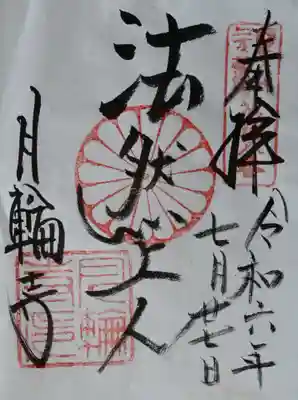 奉拝
令和六年
七月廿七日
法然上人
月輪寺